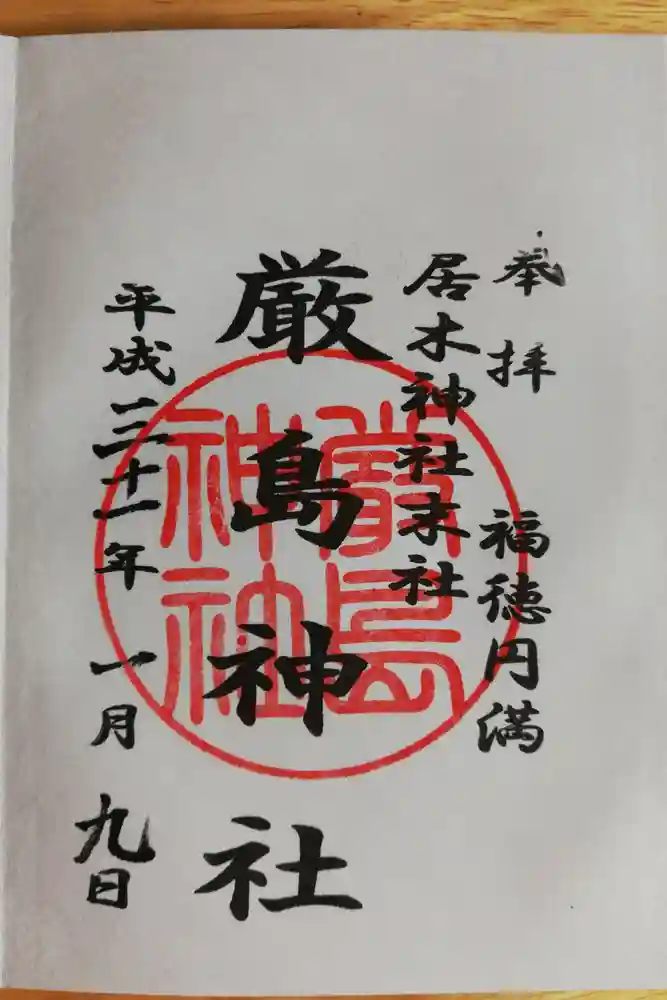 奉拝　福徳円満
居木神社末社
厳島神社
平成三十一年　一月　九日
嚴島
神社